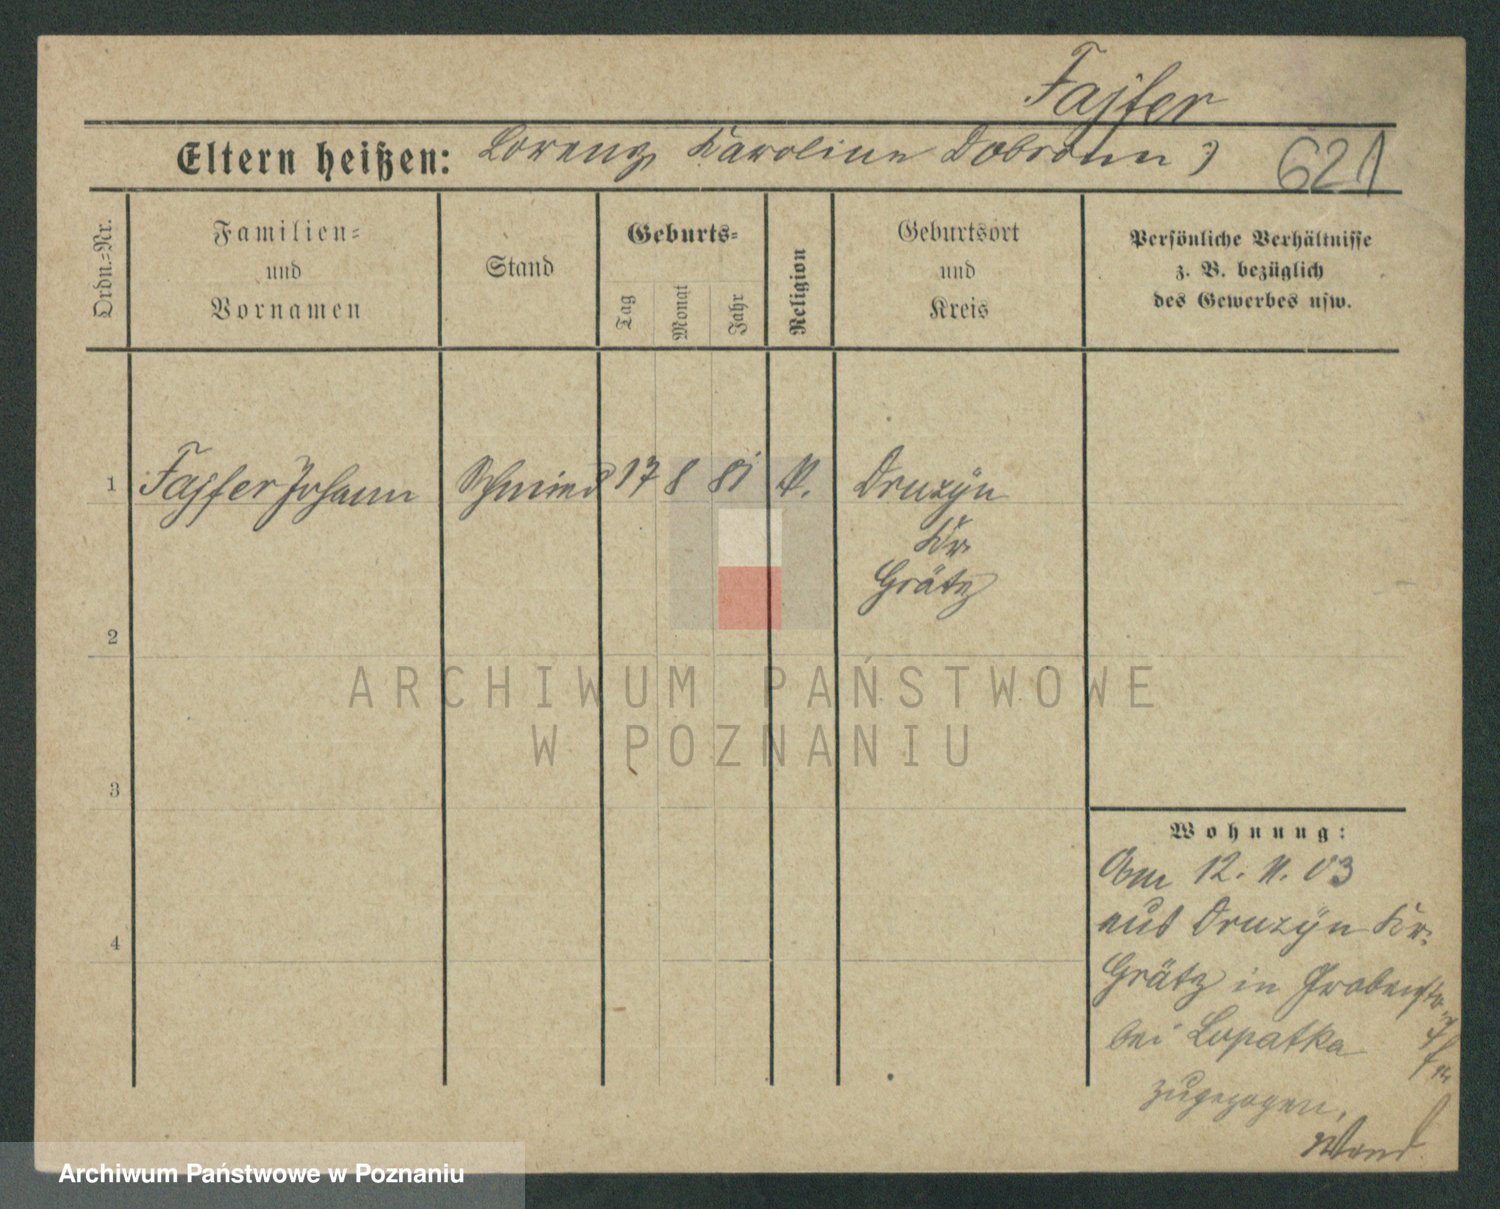 Fajfer
Eltern heißen: Lorenz Karoline 621
Ordn.-Nr.
Familien-
und
Vornamen
Stand
Geburts-
Tag
Monat
Jahr
Religion
Geburtsort
und
Kreis
Persönliche Verhältnisse
z. B. bezüglich
des Gewerbes usw.
1 Fajfer Johann Schmied 17 8 81 Druzÿn
Kr
Grätz
2
ARCHIWUM PAŃSTWOWE
W POZNANIU
3
Wohnung:
Am 12. 03
aus Druzÿn Kr.
4
Grätz in
bei Lopatka
zugezogen.
Archiwum Państwowe w Poznaniu